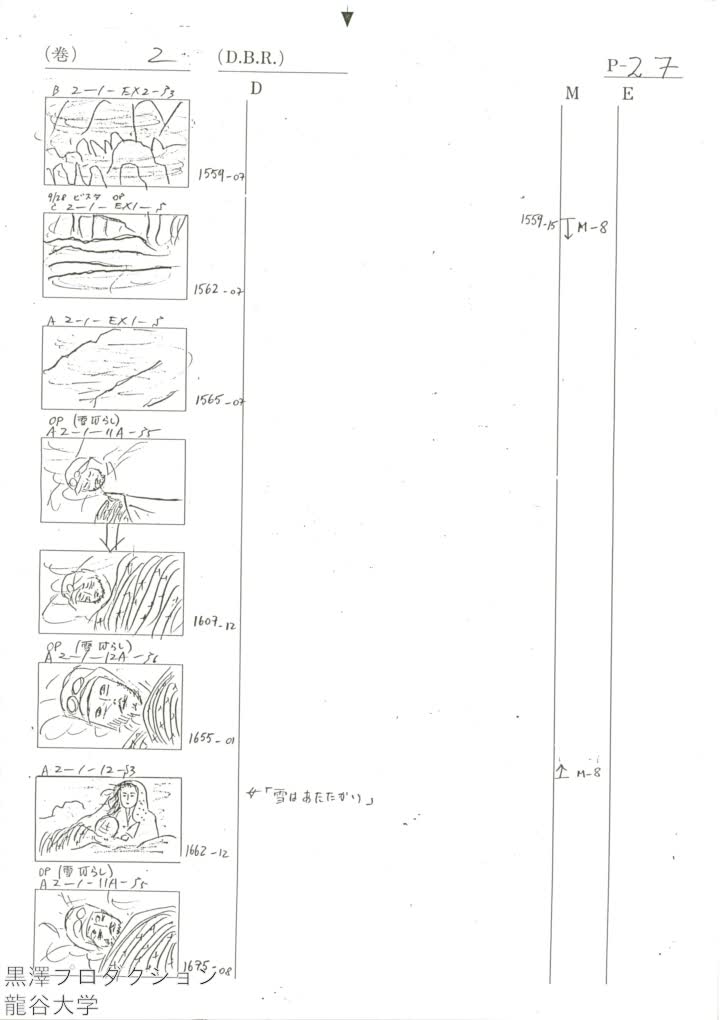 (巻) 2 (D.B.R.) P-27
D M E
B 2-1-EX2-53
1559-07
9/28 ビスタ OP
C 2-1-EX1-5
1559-15 M-8
1562-07
A 2-1-EX1-5
1565-07
OP (雪ばらし)
A 2-1-11A-55
1607-12
OP (雪ばらし)
A 2-1-12A-56
1655-01
M-8
A 2-1-12-53
←「雪はあたたかい」
1662-12
OP (雪ばらし)
A 2-1-11A-55
1675-08
黒澤プロダクション
龍谷大学